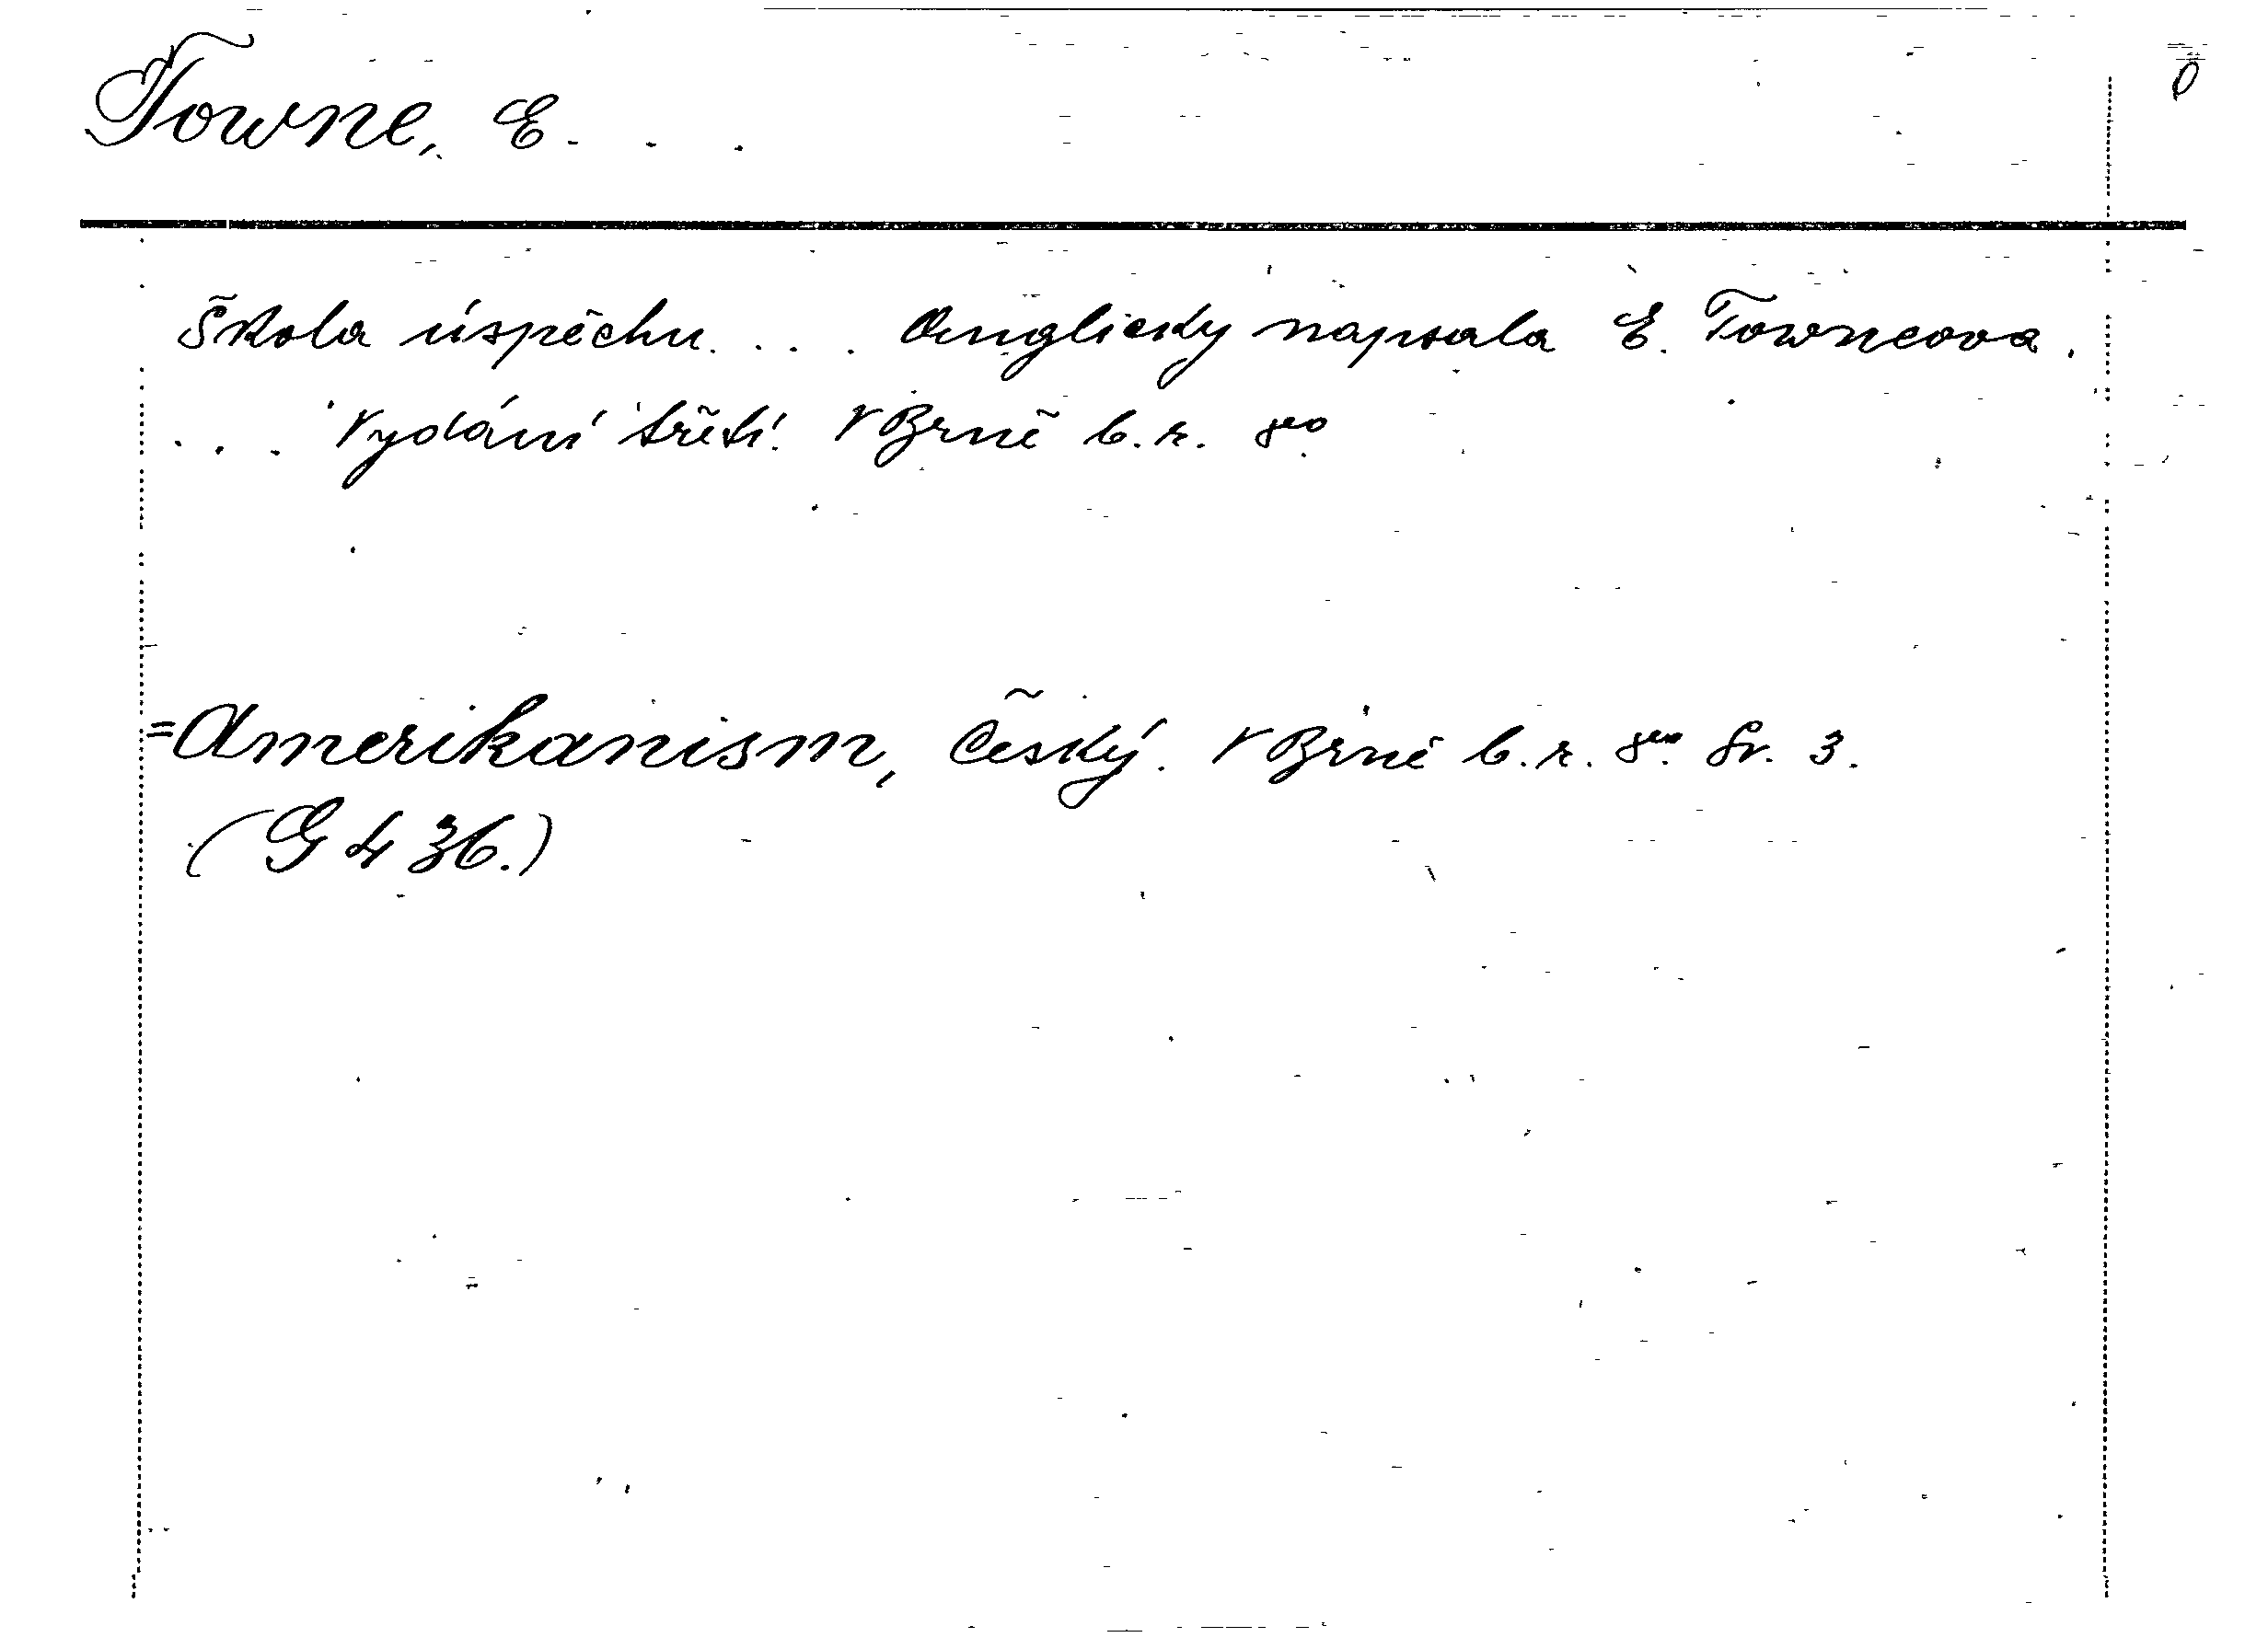 Towne, E. . .
Škola úspěchu. . . . Anglicky napsala E. Towneova.
. . . Vydání třetí. V Brně b. r. 8vo.
=Amerikanism, Český. V Brně b. r. 8vo. Sv. 3.
(G 436.)